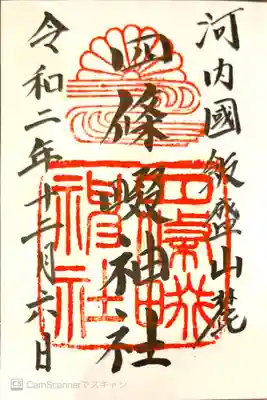 河内國飯盛山麓
四條畷神社
四條畷
神社
令和二年十二月六日
CS CamScannerでスキャン